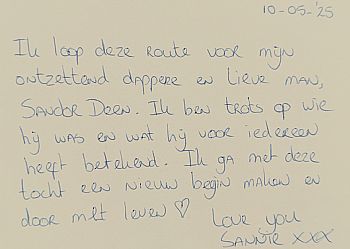 10-05-'25
Ik loop deze route voor mijn
ontzettend dappere en lieve man,
Sandor Deen. Ik ben trots op wie
hij was en wat hij voor iedereen
heeft betekend. Ik ga met deze
tocht een nieuw begin maken en
door met leven ♡ Love you
Sannie xxx